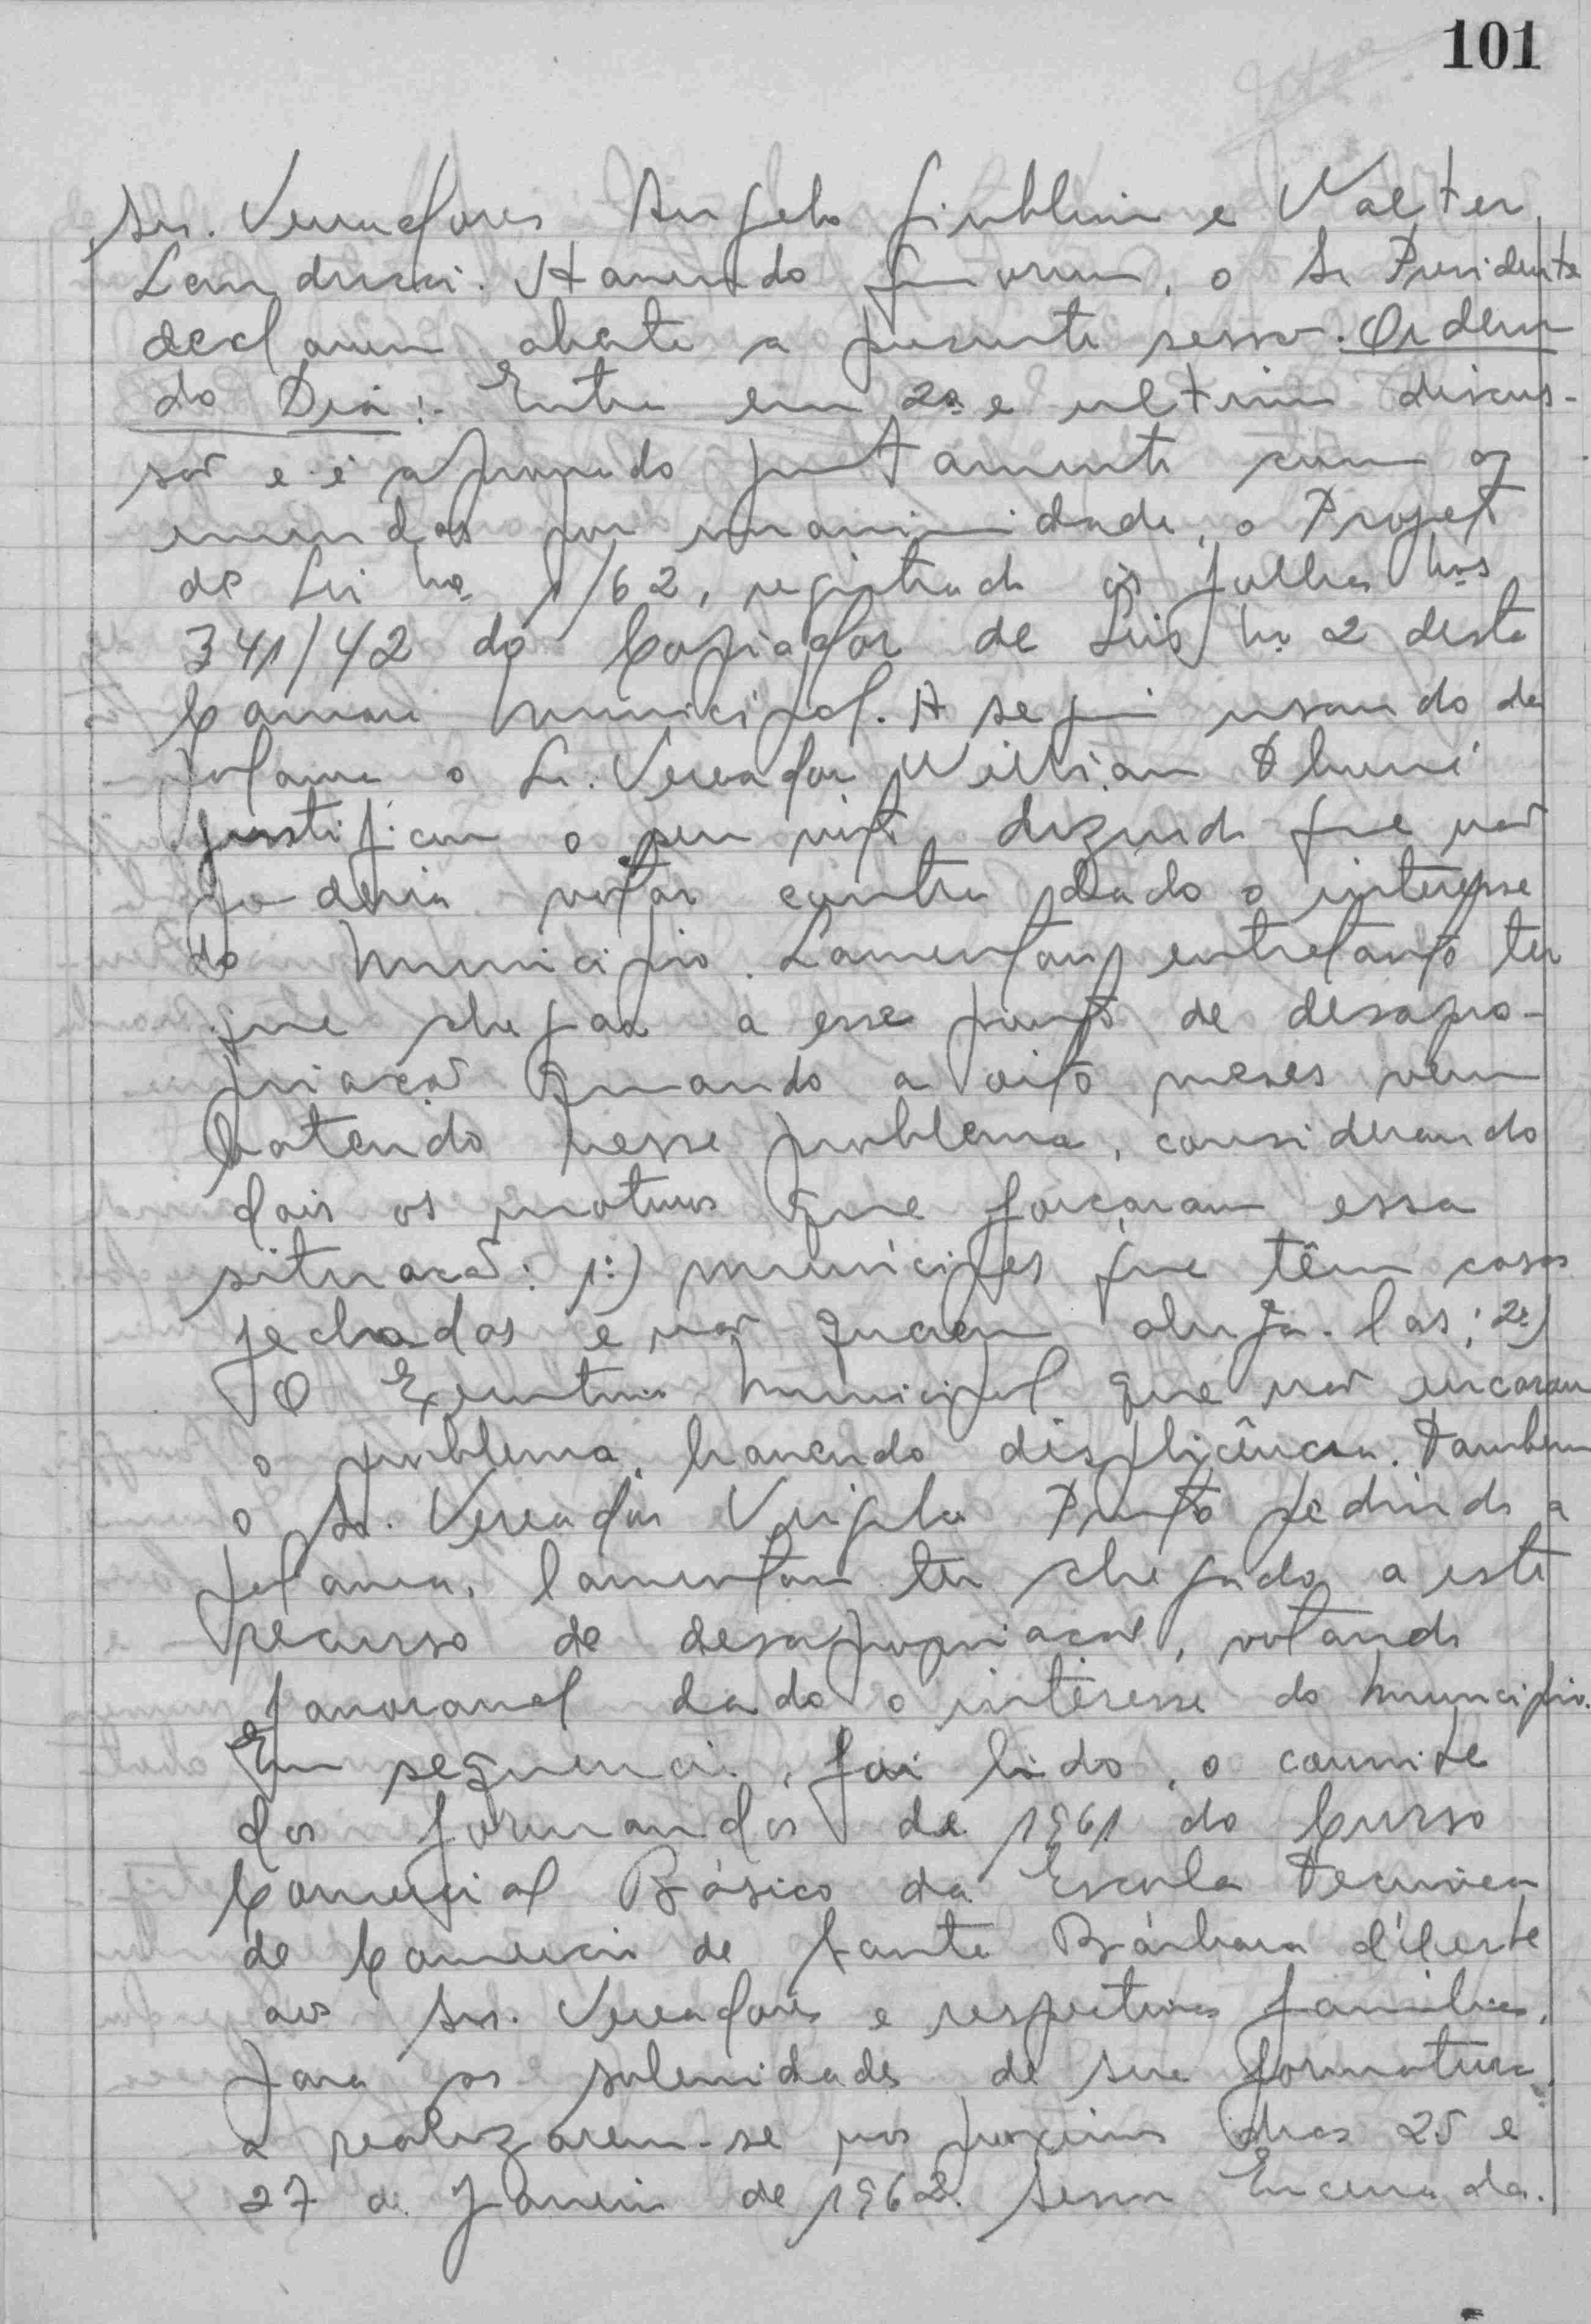 101
Srs. Vereadores Angelo Giubbina e Valter
Landucci. Havendo quorum, o Sr Presidente
declarou aberta a presente sessão. Ordem
do Dia:- Entra em 2ª e ultima discus-
são e é aprovado juntamente com as
emendas por unanimidade, o Projeto
de Lei nº 1/62, registrado às folhas nos
341/42 do Copiador de Leis nº 2 desta
Camara Municipal. A seguir usando da
palavra o Sr. Vereador Willian
justificou o seu voto, dizendo que não
poderia votar contra dado o interesse
do Municipio. Lamentava entretanto ter
que chegar a esse ponto de desapro-
priação quando a oito meses vem
batendo nesse problema, considerando
dois os motivos que forçaram essa
situação: 1º) municipes que têm casas
fechadas e não querem aluga-las; 2º)
O Executivo Municipal que não encarou
o problema, havendo displicência. Tambem
o Sr. Vereador Virgilio Pinto pedindo a
palavra, lamentou ter chegado a este
recurso de desapropriação, votando
favoravel dado o interesse do municipio.
Em sequencia, foi lido, o convite
dos formandos de 1961 do Curso
Comercial Básico da Escola Tecnica
de Comercio de Santa Bárbara d'Oeste
aos Srs. Vereadores e respectivas familias,
para as solenidades de sua formatura,
a realizarem-se nos proximos dias 25 e
27 de Janeiro de 1962. Sessão Encerrada.